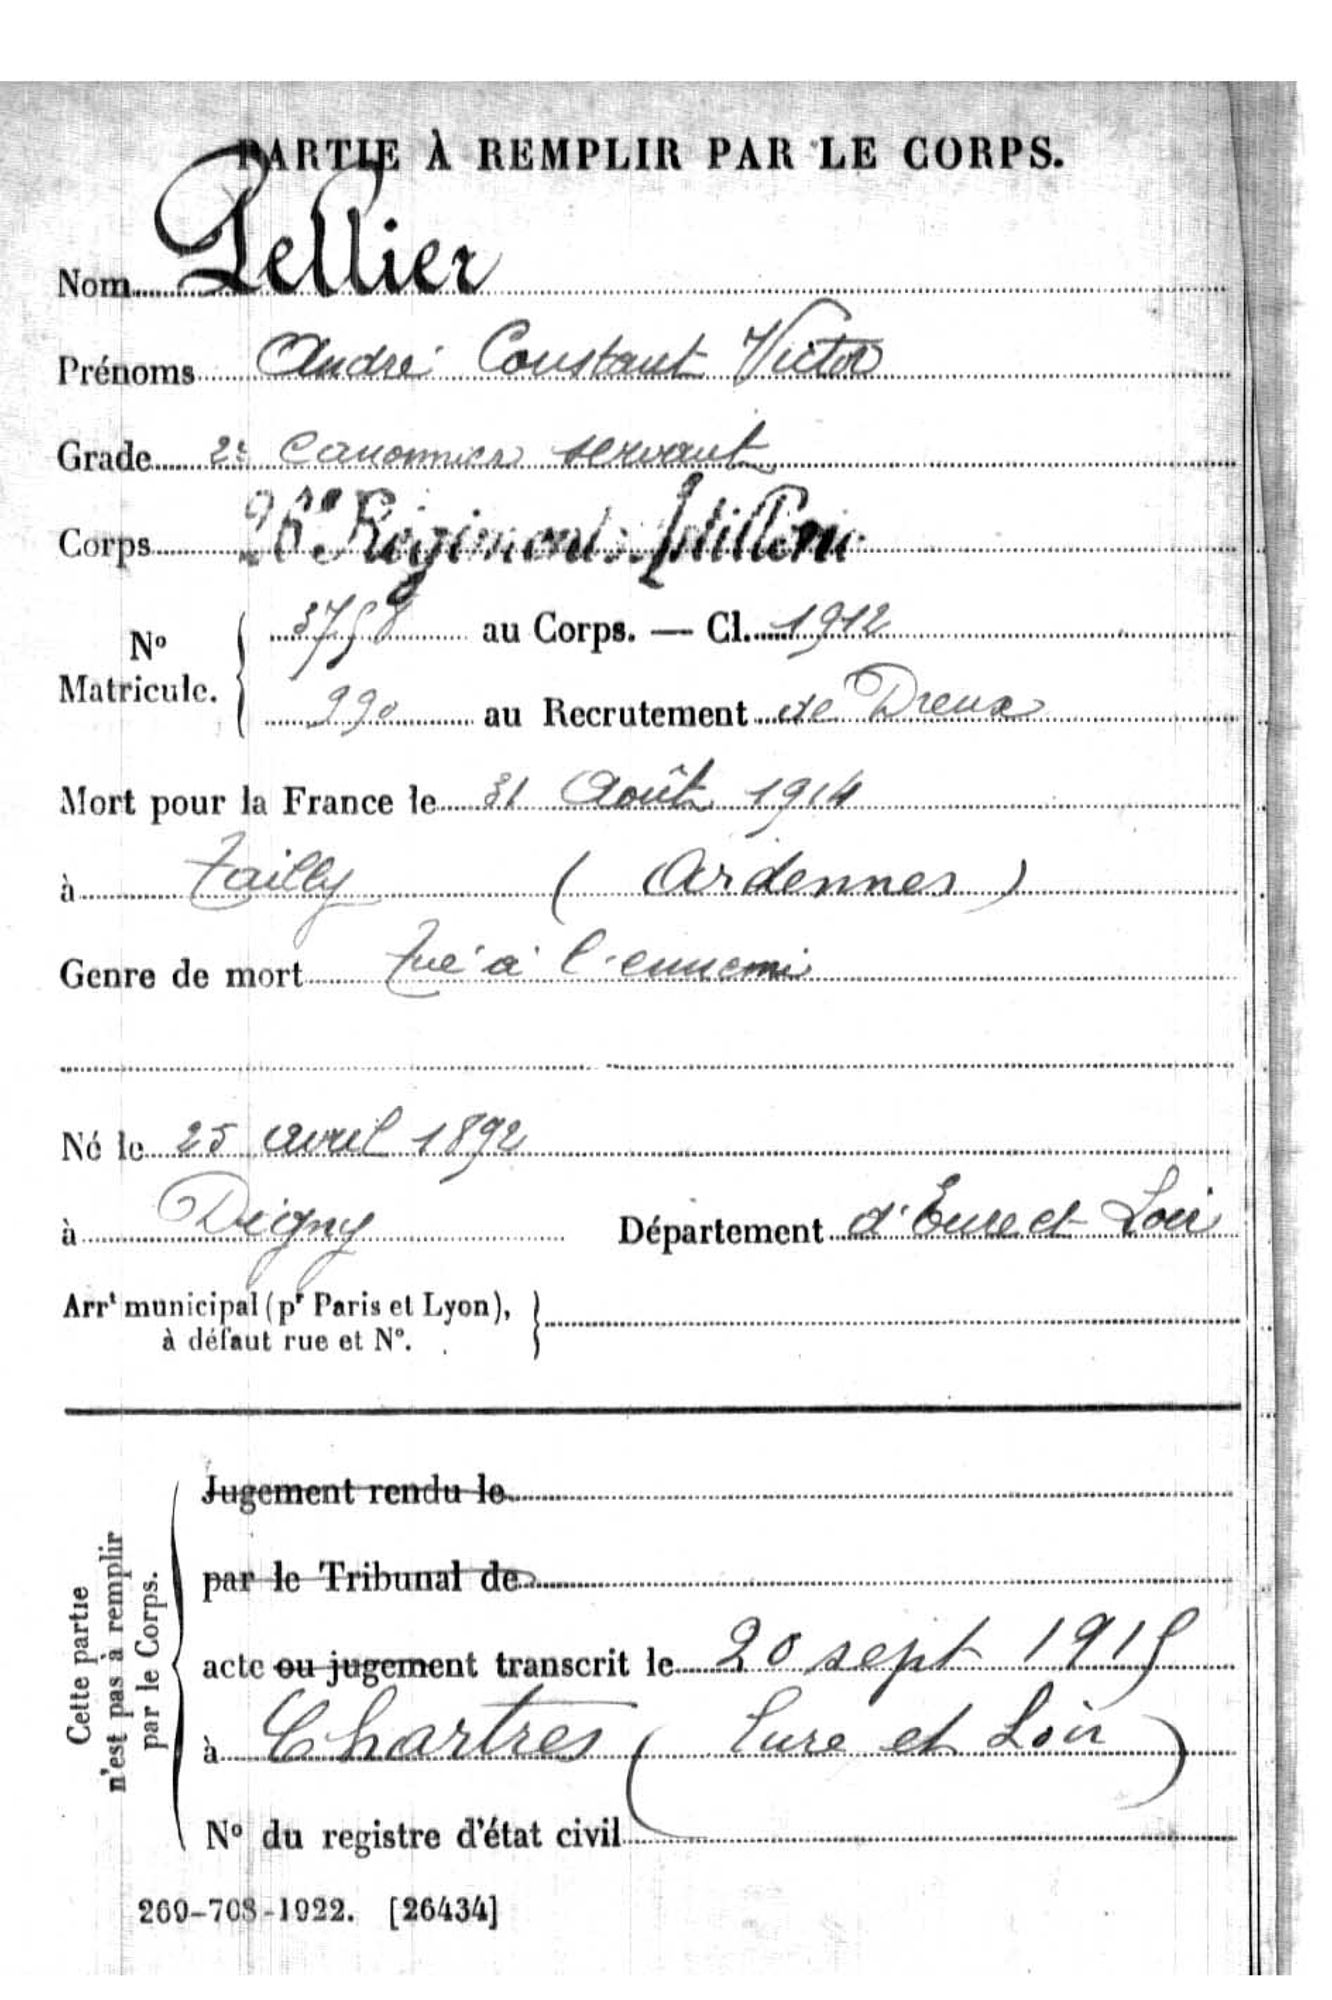 PARTIE À REMPLIR PAR LE CORPS.
Nom Pellier
Prénoms André Constant Victor
Grade 2e Canonnier servant
Corps 26e Régiment Artillerie
No Matricule. 3758 au Corps. — Cl. 1912
990 au Recrutement de Dreux
Mort pour la France le 31 Août 1914
à Tailly (Ardennes)
Genre de mort Tué à l'ennemi
Né le 25 avril 1892
à Digny Département d'Eure et Loir
Arrt municipal (pr Paris et Lyon),
à défaut rue et No.
Cette partie
n'est pas à remplir
par le Corps.
Jugement rendu le
par le Tribunal de
acte ou jugement transcrit le 20 sept 1915
à Chartres (Eure et Loir)
No du registre d'état civil
269-708-1922. [26434]